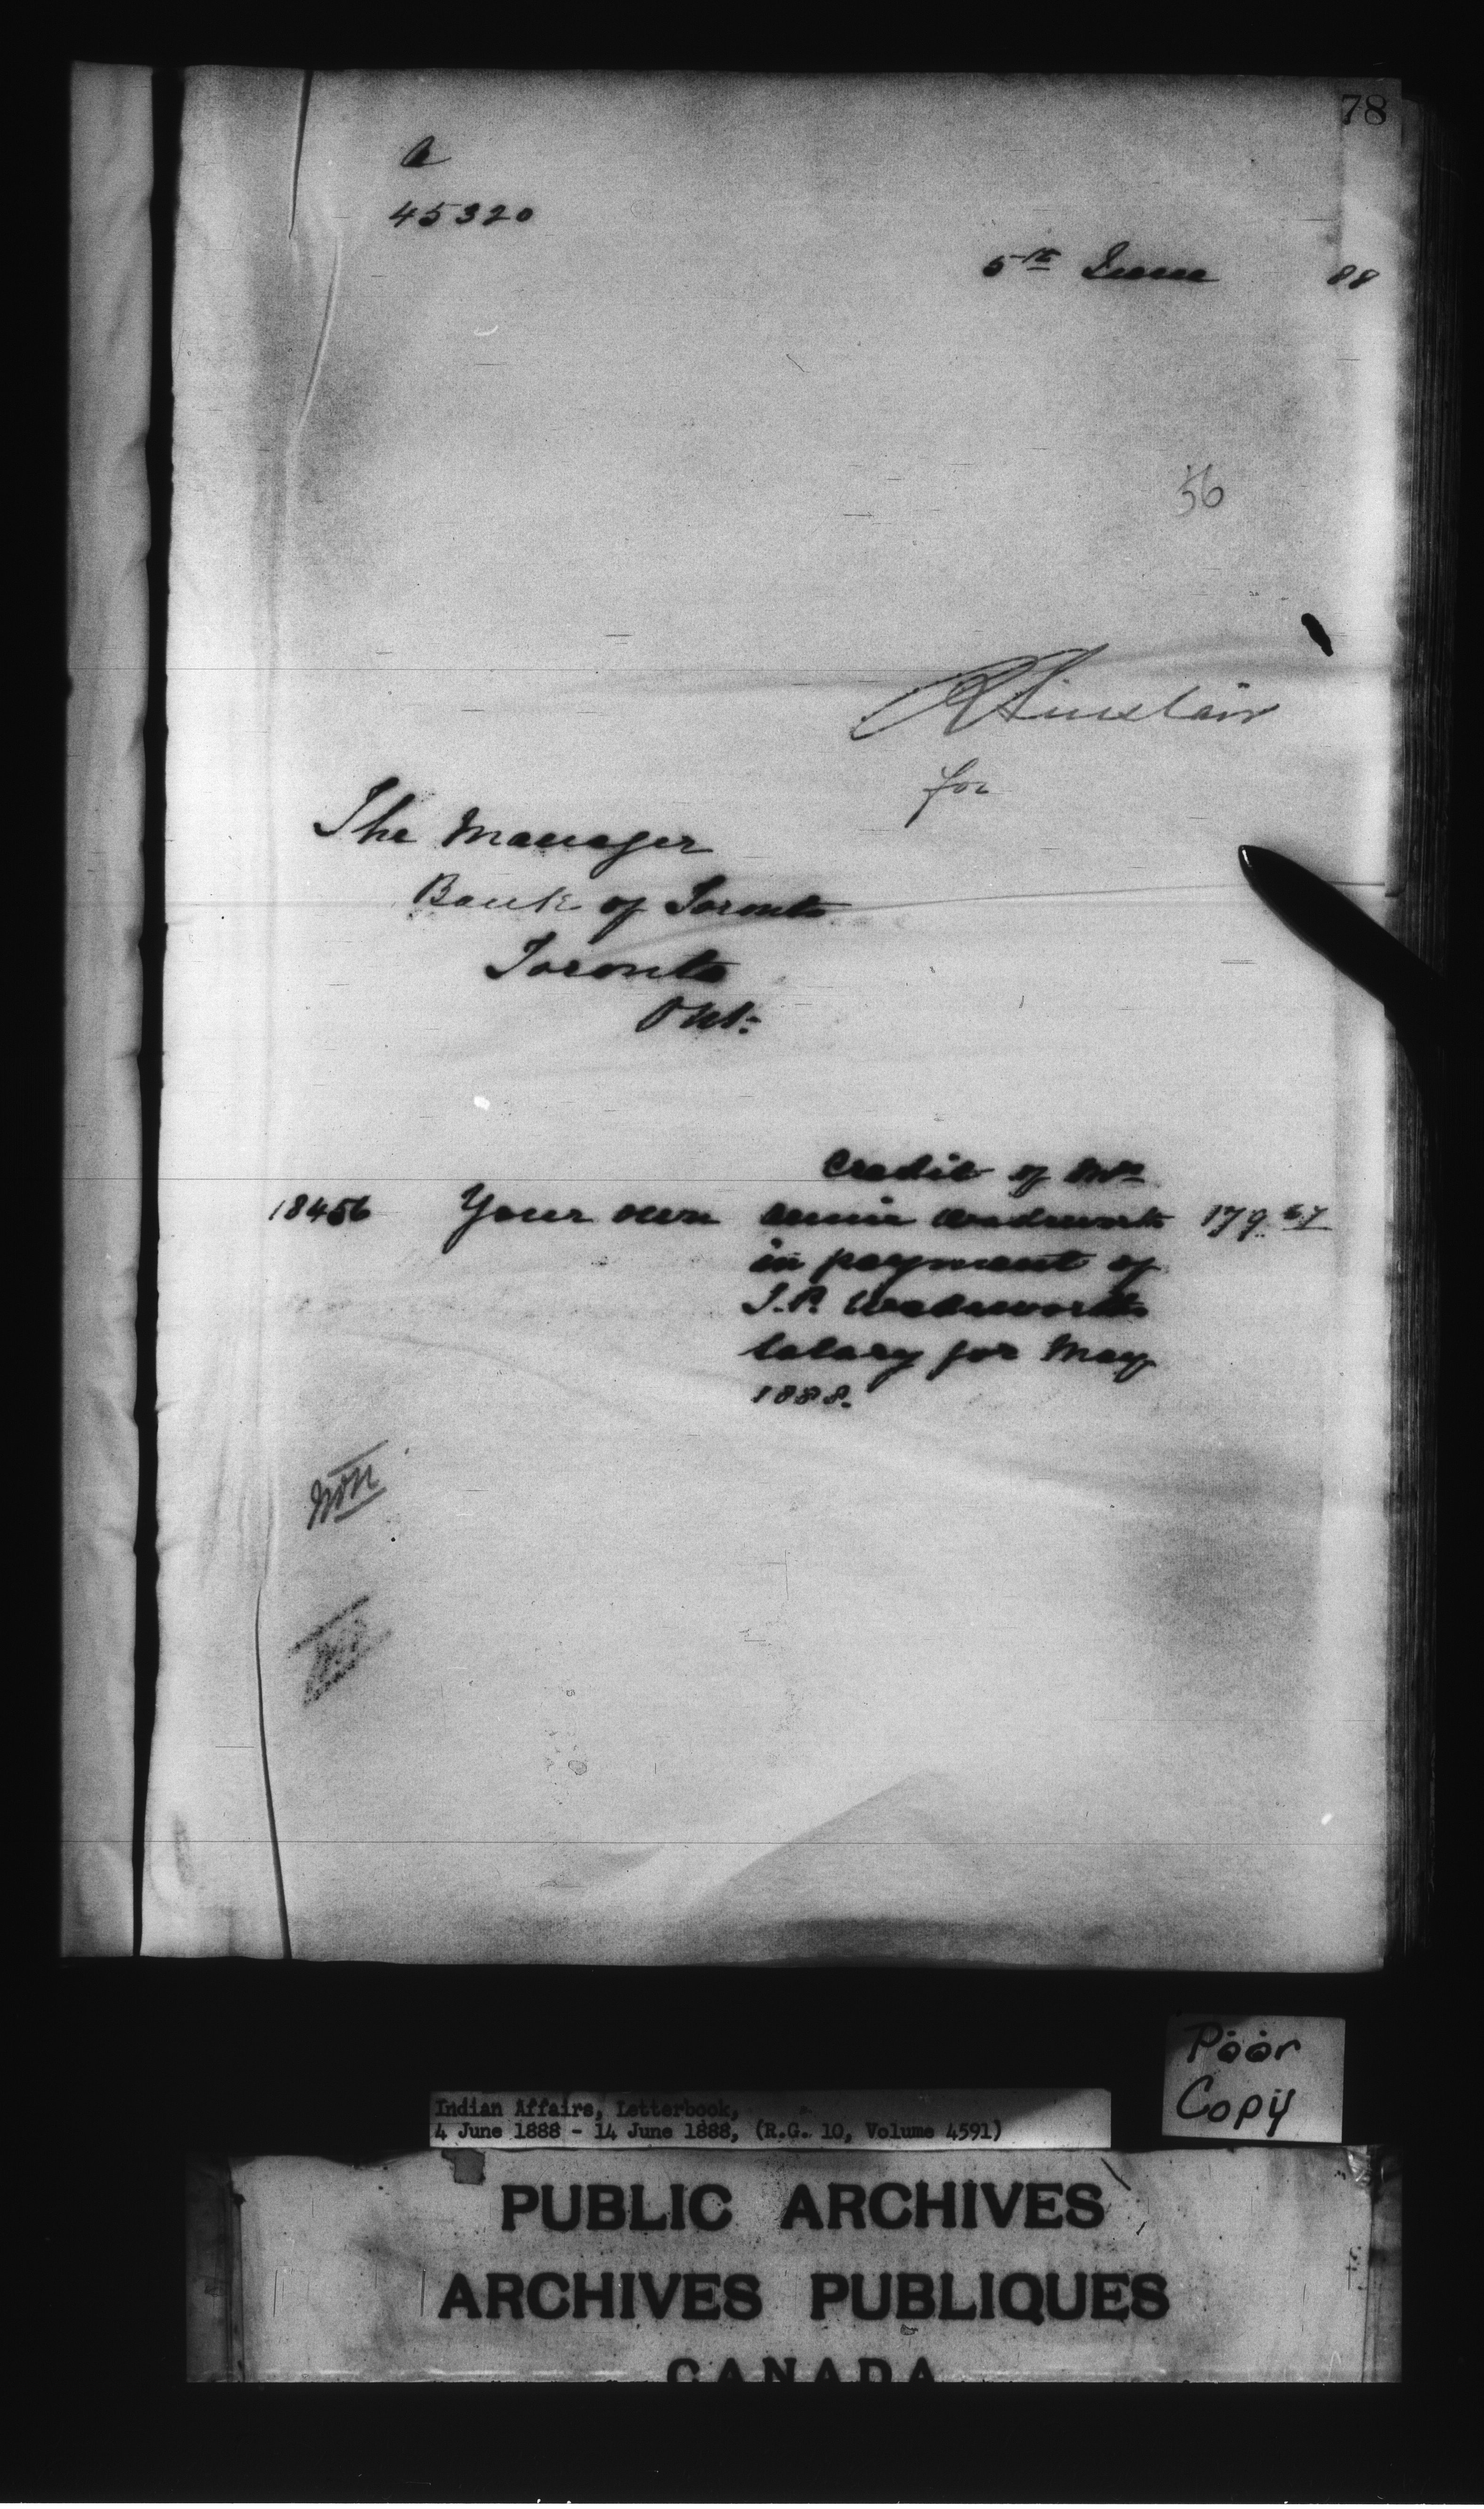 78
a
45320
5th June 88
56
R Sinclair
for
The Manager
Bank of Toronto
Toronto
Ont:
Credit of Mrs
18456 Your own Annie Wadsworth 179.67
in payment of
T.P. Wadsworth
Salary for May
1888.
Poor
Copy
Indian Affairs, Letterbook,
4 June 1888 - 14 June 1888, (R.G. 10, Volume 4591)
PUBLIC ARCHIVES
ARCHIVES PUBLIQUES
CANADA